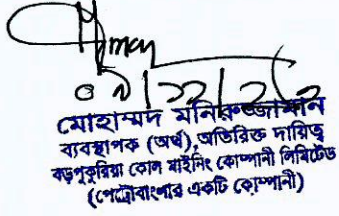 মোহাম্মদ মনিরুজ্জামান
ব্যবস্থাপক (অর্থ), অতিরিক্ত দায়িত্ব
বড়পুকুরিয়া কোল মাইনিং কোম্পানী লিমিটেড
(পেট্রোবাংলার একটি কোম্পানী)